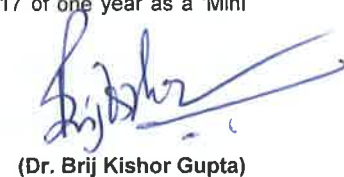 17 of one year as a 'Mini
(Dr. Brij Kishor Gupta)